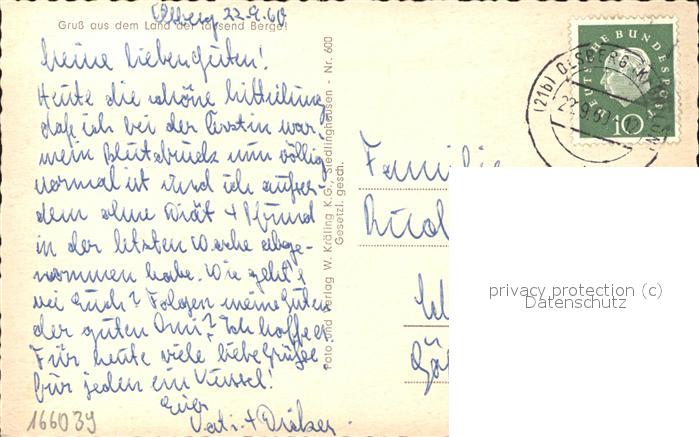 Olsberg 22.9.60
Gruß aus dem Land der tausend Berge!
Meine lieben guten!
Heute die schöne Mitteilung
daß ich bei der Ärztin war,
mein Blutdruck nun völlig
normal ist und ich außer-
dem ohne Diät 4 Pfund
in der letzten Woche abge-
nommen habe. Wie geht's
bei Euch? Folgen meine Guten
der guten Omi? Ich hoffe es.
Für heute viele liebe Grüße
für jeden ein Küssel!
Euer
Vati +
166039
Foto und Verlag W. Kräling K.G., Siedlinghausen - Nr. 600
Gesetzl. gesch.
DEUTSCHE BUNDESPOST
10
(21b) OLSBERG
22.9.60
Familie
privacy protection (c)
Datenschutz